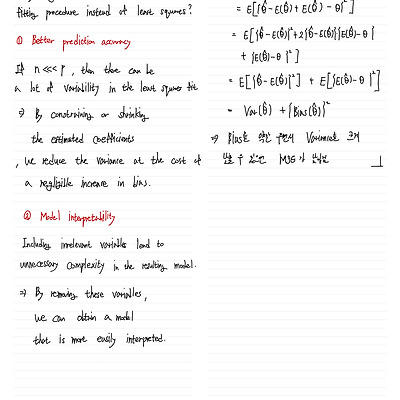 fitting procedure instead of least squares?
① Better prediction accuracy
If n <<< p , then there can be
a lot of variability in the least square fit
⇒ By constraining or shrinking
the estimated coefficients
, we reduce the variance at the cost of
a negligible increase in bias.
② Model interpretability
Including irrelevant variables lead to
unnecessary complexity in the resulting model.
⇒ By removing these variables,
we can obtain a model
that is more easily interpreted.
= E[{θ̂-E(θ̂)+E(θ̂)-θ}²]
= E[{θ̂-E(θ̂)}²+2{θ̂-E(θ̂)}{E(θ̂)-θ}
+ {E(θ̂)-θ}²]
= E[{θ̂-E(θ̂)}²] + E[{E(θ̂)-θ}²]
= Var(θ̂) + {Bias(θ̂)}²
⇒ Bias를 Variance를 크게
수 있으면 MSE가